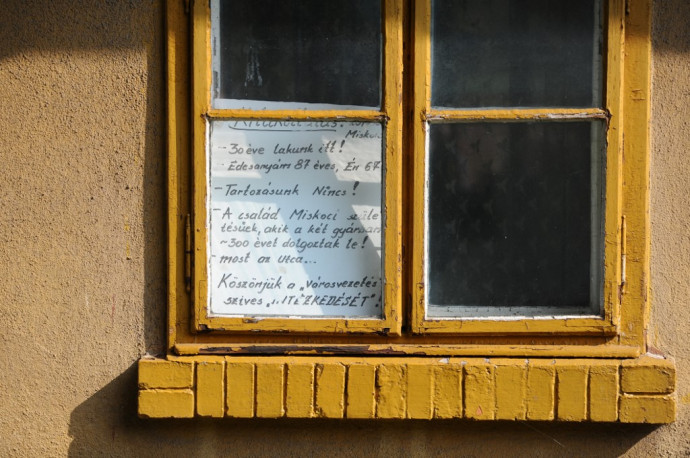 Miskoc
- 30 éve lakunk itt!
- Édesanyám 87 éves, Én 67
- Tartozásunk Nincs!
- A család Miskoci szüle
tésűek, akik a két gyárban
~300 évet dolgoztak le!
- most az utca...
Köszönjük a „városvezetés
szíves „INTÉZKEDÉSÉT"!